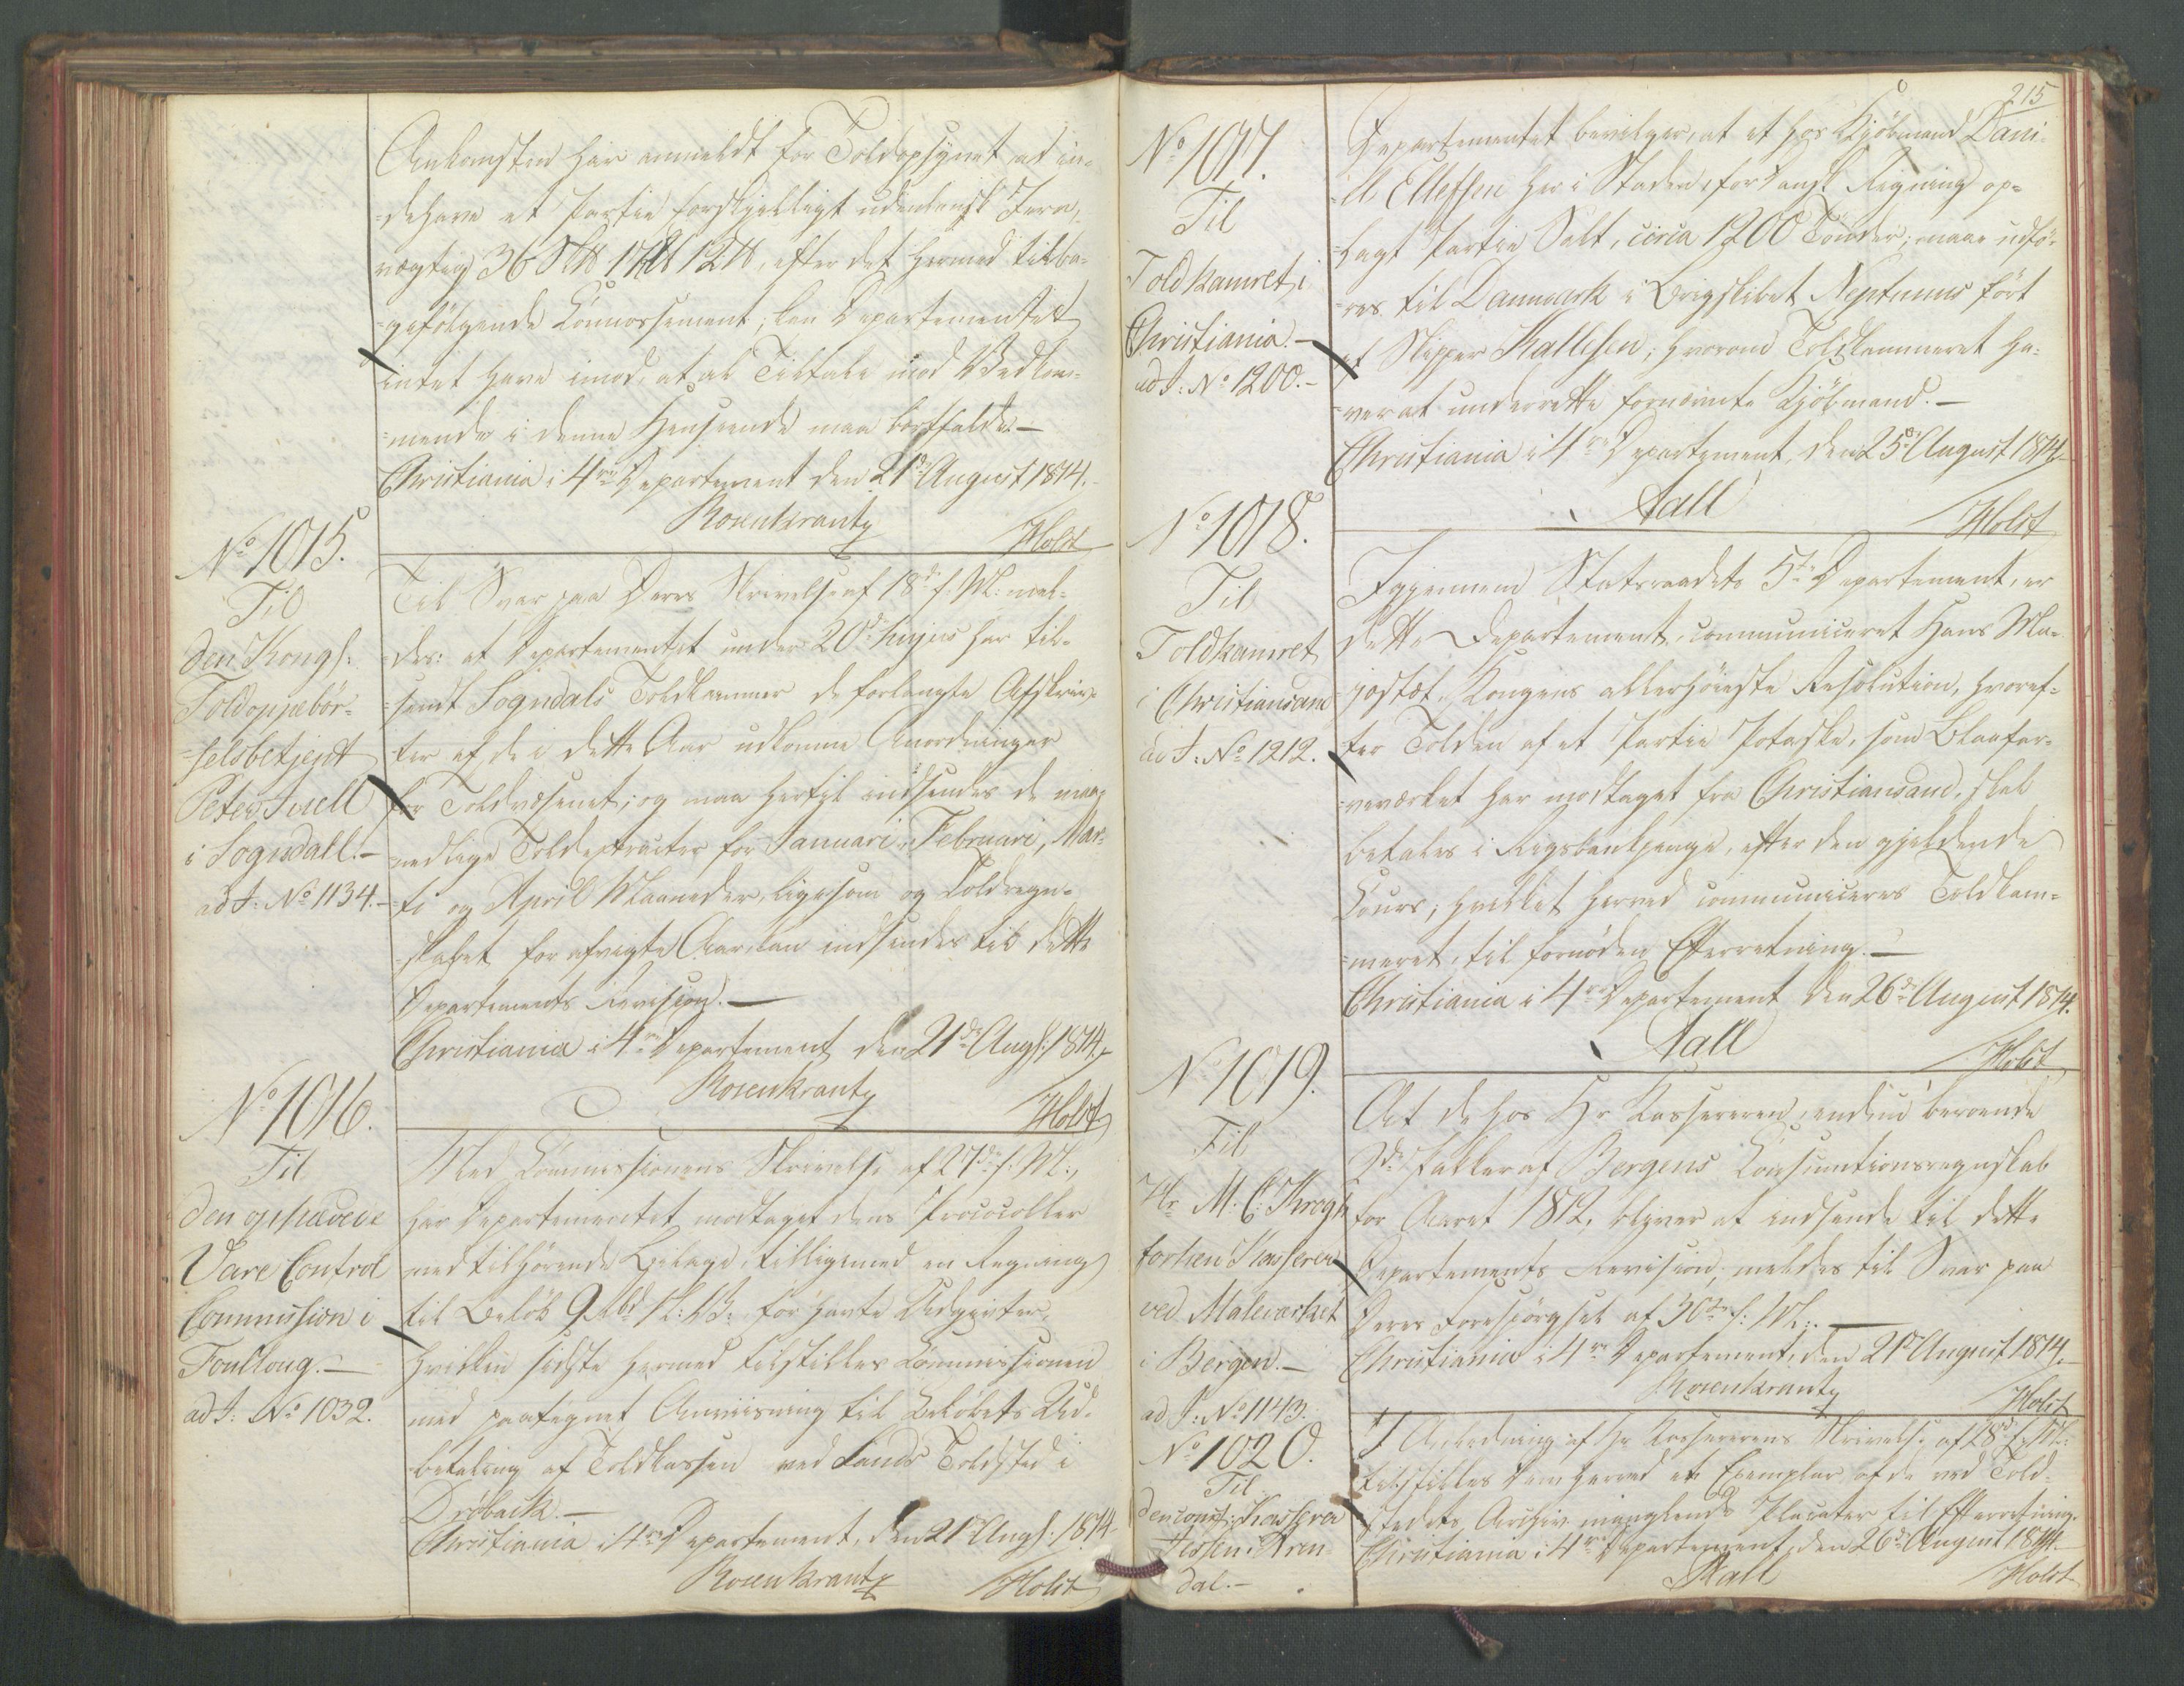 Ankomsten har anmeldt for Toldopsynet at in-
-dehave et Partie forskjelligt udenlansk Jern,
vægtig 36 S℔ 17 L℔ 12 ℔, efter det hermed tilba-
-gefølgende Connossement; kan Departementet
intet have imod, at al Tiltale mod Vedkom-
-mende i denne Henseende maa bortfalde.-
Christiania i 4re Departement den 21de August 1814.
Rosenkrantz
Holst
No 1015.
Til
den Kongl:
Toldoppebör-
-selsbetjent
Peter Juell
i Sogndall.-
ad J: No 1134.-
Til Svar paa Deres Skrivelse af 18de f: M: mel-
-des: at Departementet under 20de hujus har til-
-sendt Sogndals Toldkammer de forlangte Afskriv-
-ter af de i dette Aar udkomne Anordninger
for Toldvæsenet; og maa hertil indsendes de maa-
nedlige Toldextracter for Januari, Februari, Mar-
-ti og April Maaneder, ligesom og Toldregn-
-skabet for afvigte Aar, kan indsendes til dette
Departements Revision.-
Christiania i 4re Departement den 21de Augs: 1814.
Rosenkrantz
Holst
No 1016.
Til
den ophævede
Vare Control
Commission i
Foulloug.-
ad J: No 1032.
Med Commissionens Skrivelse af 27de f: M:,
har Departementet modtaget dens Protocoller
med tilhörende Bilage, tilligemed en Regning
til Belöb 9 Rbd for havte Udgivter,
hvilken sidste hermed tilstilles Commissionen
med paategnet Anviisning til Belöbets Ud-
-betaling af Toldkassen ved Sands Toldsted i
Dröback.-
Christiania i 4re Departement, den 21de Augs: 1814
Rosenkrantz
Holst
215
No 1017.
Til
Toldkamret i
Christiania.-
ad J: No 1200.-
Departementet bevilger, at et hos Kjöbmand Dani-
-el Ellefsen her i Staden, for dansk Regning op-
-lagt Partie Salt, circa 1200 Tönder, maae udfö-
-res til Dannmark i Brigskibet Neptunus fört
af Skipper Kallesen; hvorom Toldkammeret ha-
-ver at underrette fornævnte Kjöbmand.-
Christiania i 4re Departement, den 25de August 1814.
Aall
Holst
No 1018.
Til
Toldkamret
i Christiansand
ad J: No 1212.
Igjennem Statsraadets 5te Departement, er
dette Departement communiceret Hans Ma-
-jestæt Kongens allerhöieste Resolution, hvoref-
ter Tolden af et Partie Potaske, som Blaafar-
-veværket har modtaget fra Christiansand, skal
betales i Rigsbankpenge, efter den gjeldende
Cours; hvilket herved communiceres Toldkam-
-meret, til fornöden Efterretning.-
Christiania i 4re Departement den 26de August 1814.
Aall
Holst
No 1019.
Til
Hr M: C: Krogh
forhen Kasserer
ved Maleværket
i Bergen.-
ad J: No 1143.
At de hos Hr Kassereren endnu beroende
2de Paller af Bergens Consumtionsregnskab
for Aaret 1812, bliver at indsende til dette
Departements Revision, meldes til Svar paa
Deres Forespörgsel af 30te f: M:.-
Christiania i 4re Departement, den 21de August 1814.
Rosenkrantz
Holst
No 1020.
Til
den const: Kasserer
Jessen i Aren-
dal.-
I Anledning af Hr Kassererens Skrivelse af 18de f: M:
tilstilles Dem herved et Exemplar af de ved Told-
stedets Archiv manglende Placater til Efterretning.
Christiania i 4re Departement, den 26de August 1814.
Aall
Holst